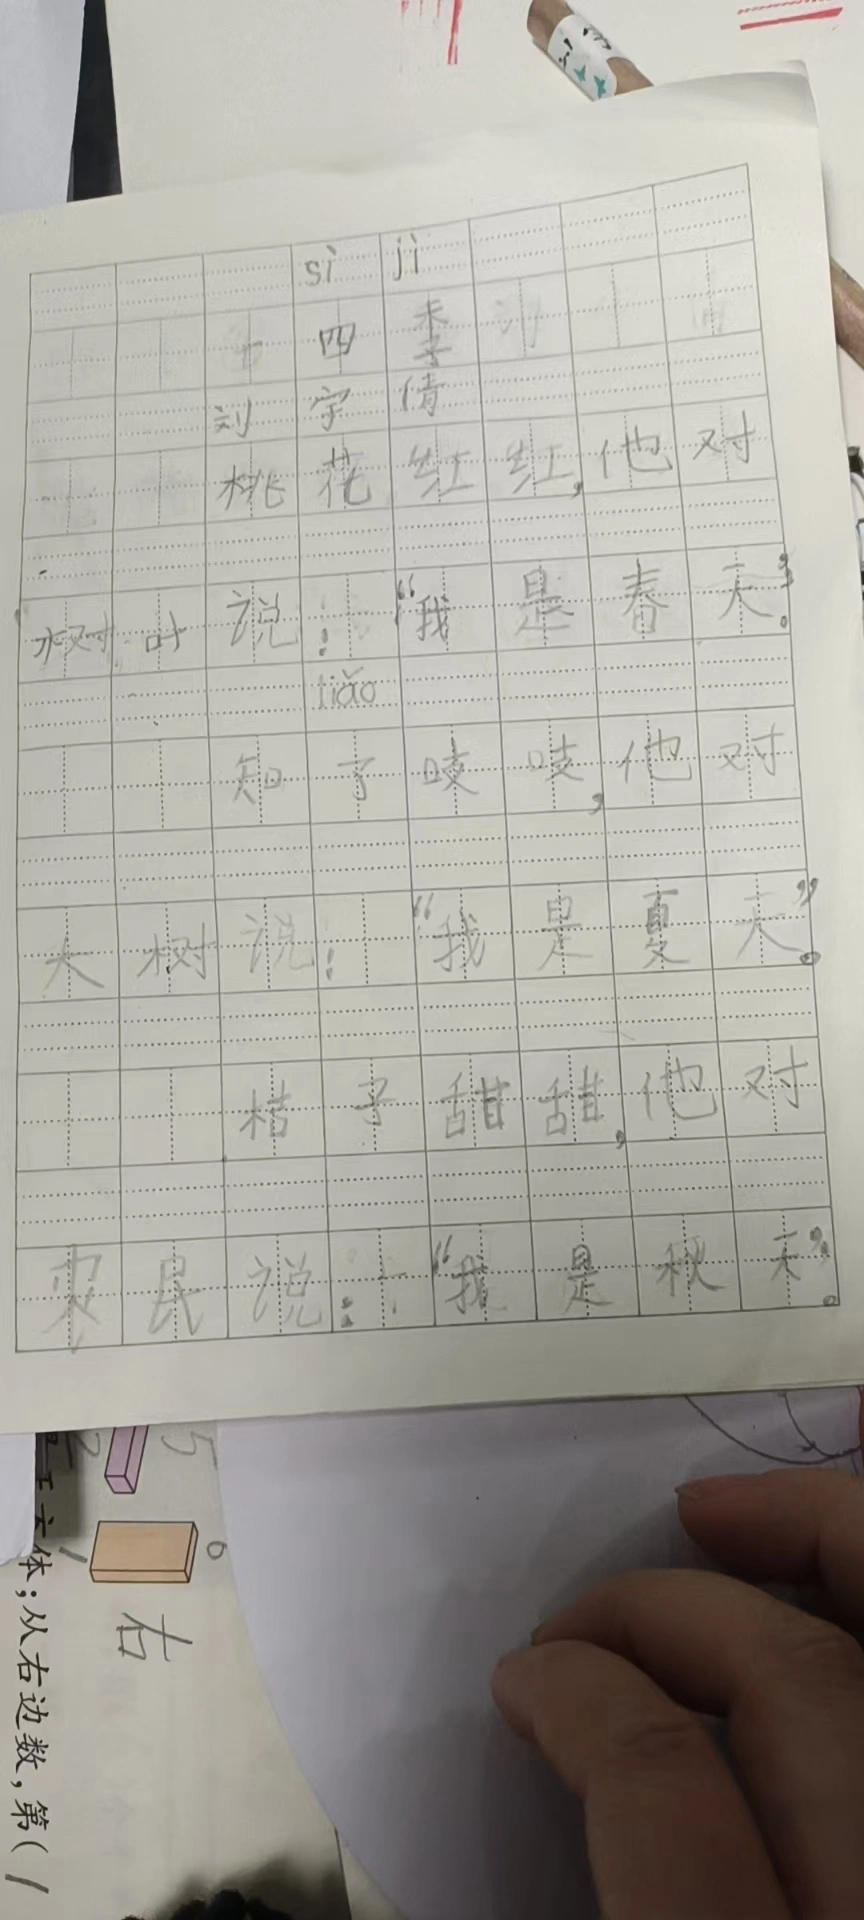 sì jì
四季
刘宇倩
桃花红红,他对
树叶说:“我是春天。”
tiǎo
知了吱吱,他对
大树说:“我是夏天”。
桔子甜甜,他对
农民说:“我是秋天”。
5
6
右
体;从右边数,第(1